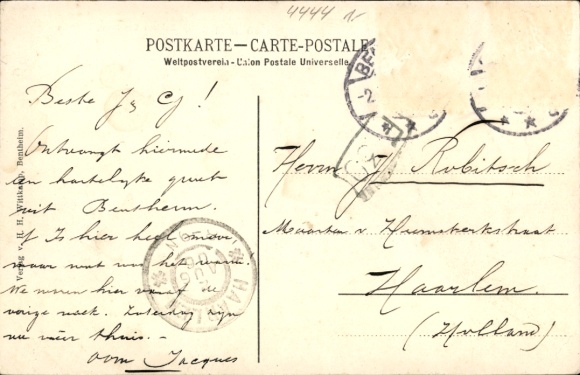 4444 1-
POSTKARTE — CARTE-POSTALE
Weltpostverein - Union Postale Universelle
BE
-2
Beste J. & C. !
Ontvangt hiermede
een hartelyke groet
uit Bentheim.
Is hier heel mooi
maar wat was het warm.
We waren hier vanaf de
vorige week. Zaterdag zijn
we weer thuis. -
oom Jacques
Heeren J. Robitsch
Maarten v. Heemskerkstraat
Haarlem.
(Holland)
HAARLEM
Verlag v. H. H. Wittkamp, Bentheim.